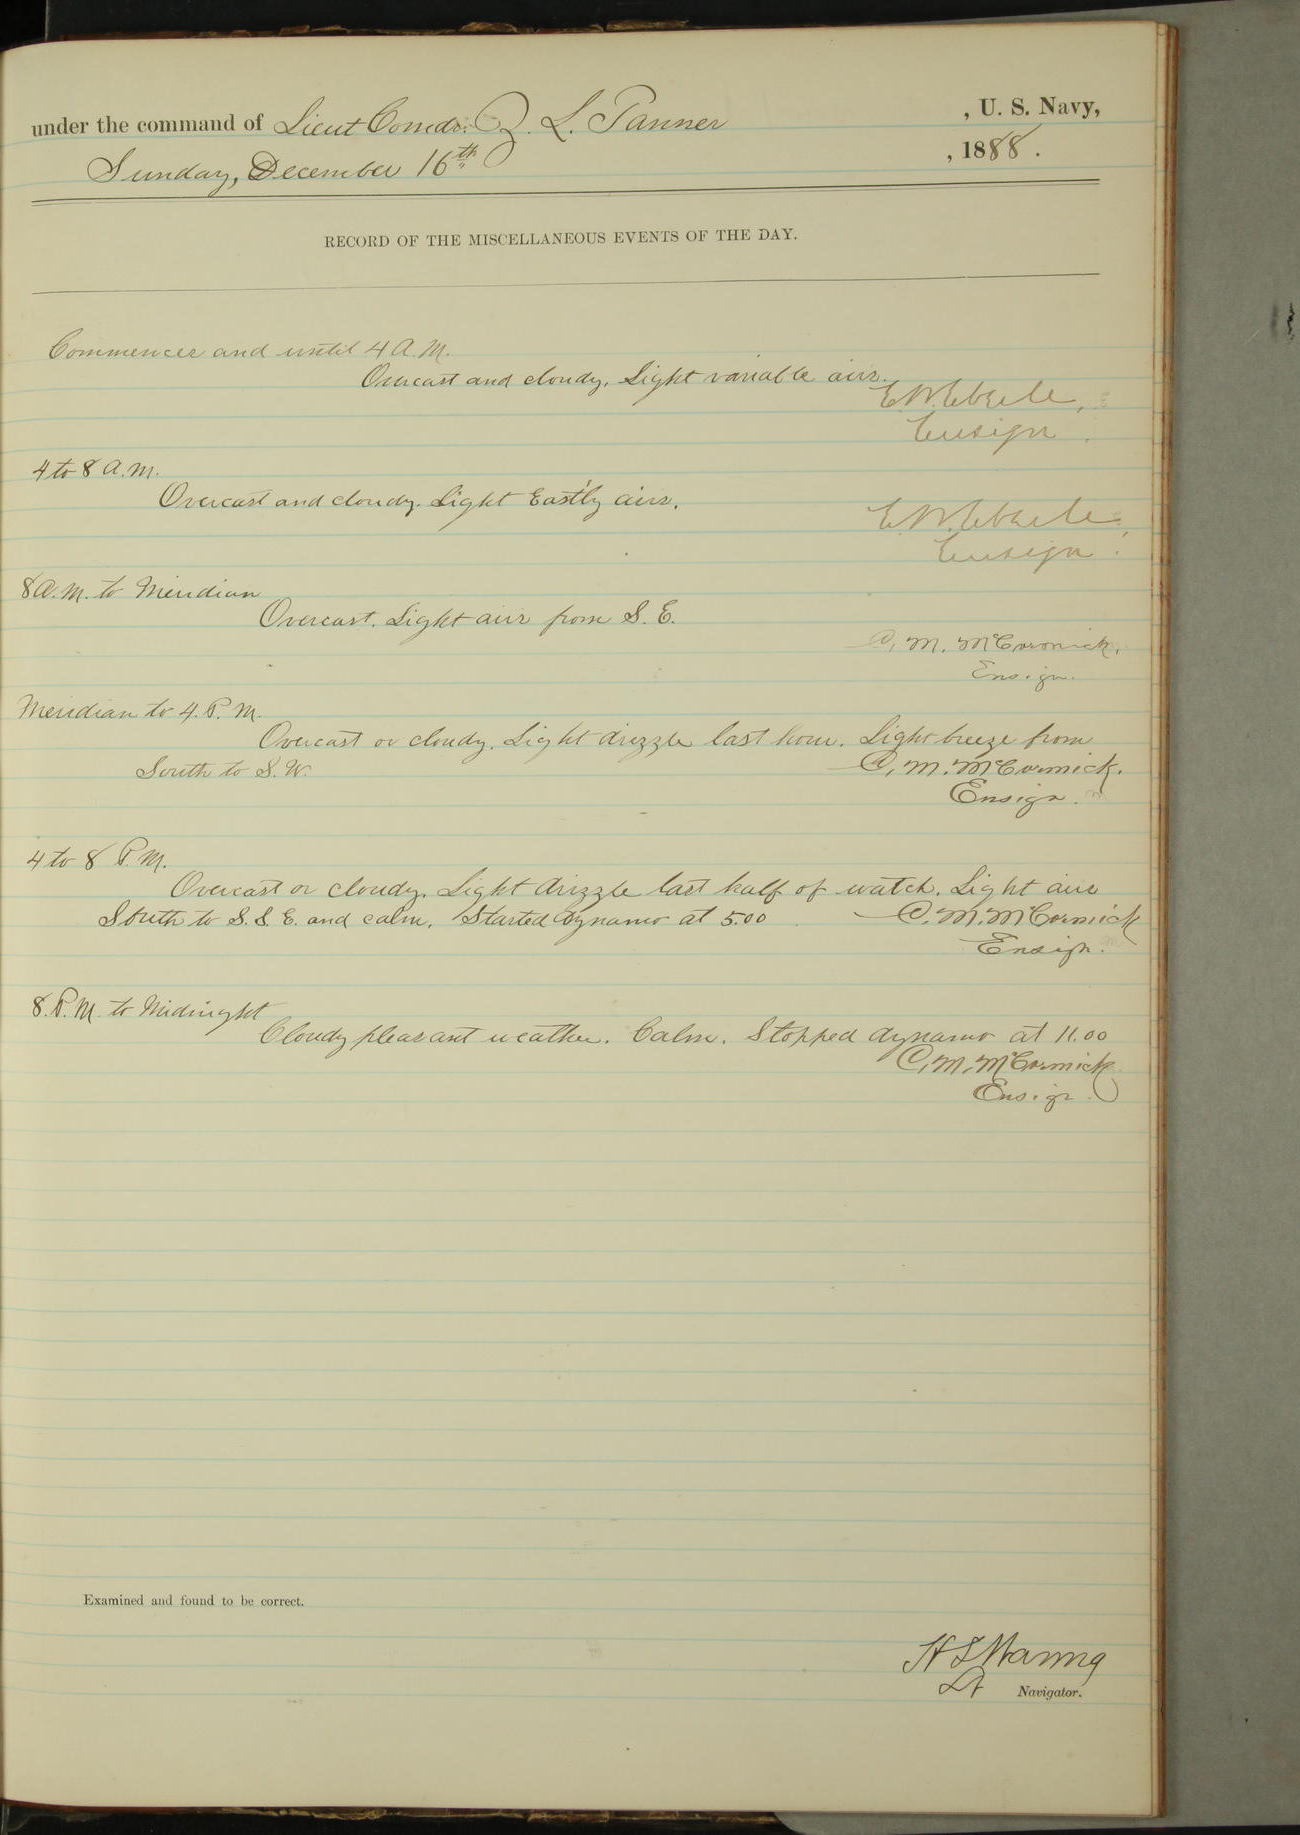 under the command of Lieut Comdr. Z. L. Tanner , U. S. Navy,
Sunday, December 16th , 1888.
RECORD OF THE MISCELLANEOUS EVENTS OF THE DAY.
Commences and until 4 A.M.
Overcast and cloudy. Light variable airs.
E. W. Eberle,
Ensign.
4 to 8 A.M.
Overcast and cloudy. Light East'ly airs.
E. W. Eberle,
Ensign.
8 A.M. to Meridian
Overcast. Light airs from S. E.
C. M. McCormick,
Ensign.
Meridian to 4. P. M.
Overcast or cloudy. Light drizzle last hour. Light breeze from
South to S. W.
C. M. McCormick.
Ensign.
4 to 8 P.M.
Overcast or cloudy. Light drizzle last half of watch. Light airs
South to S. S. E. and calm. Started Dynamo at 5.00
C. M. McCormick
Ensign.
8. P. M. to Midnight
Cloudy pleasant weather. Calm. Stopped dynamo at 11.00
C. M. McCormick
Ensign.
Examined and found to be correct.
Lt Navigator.